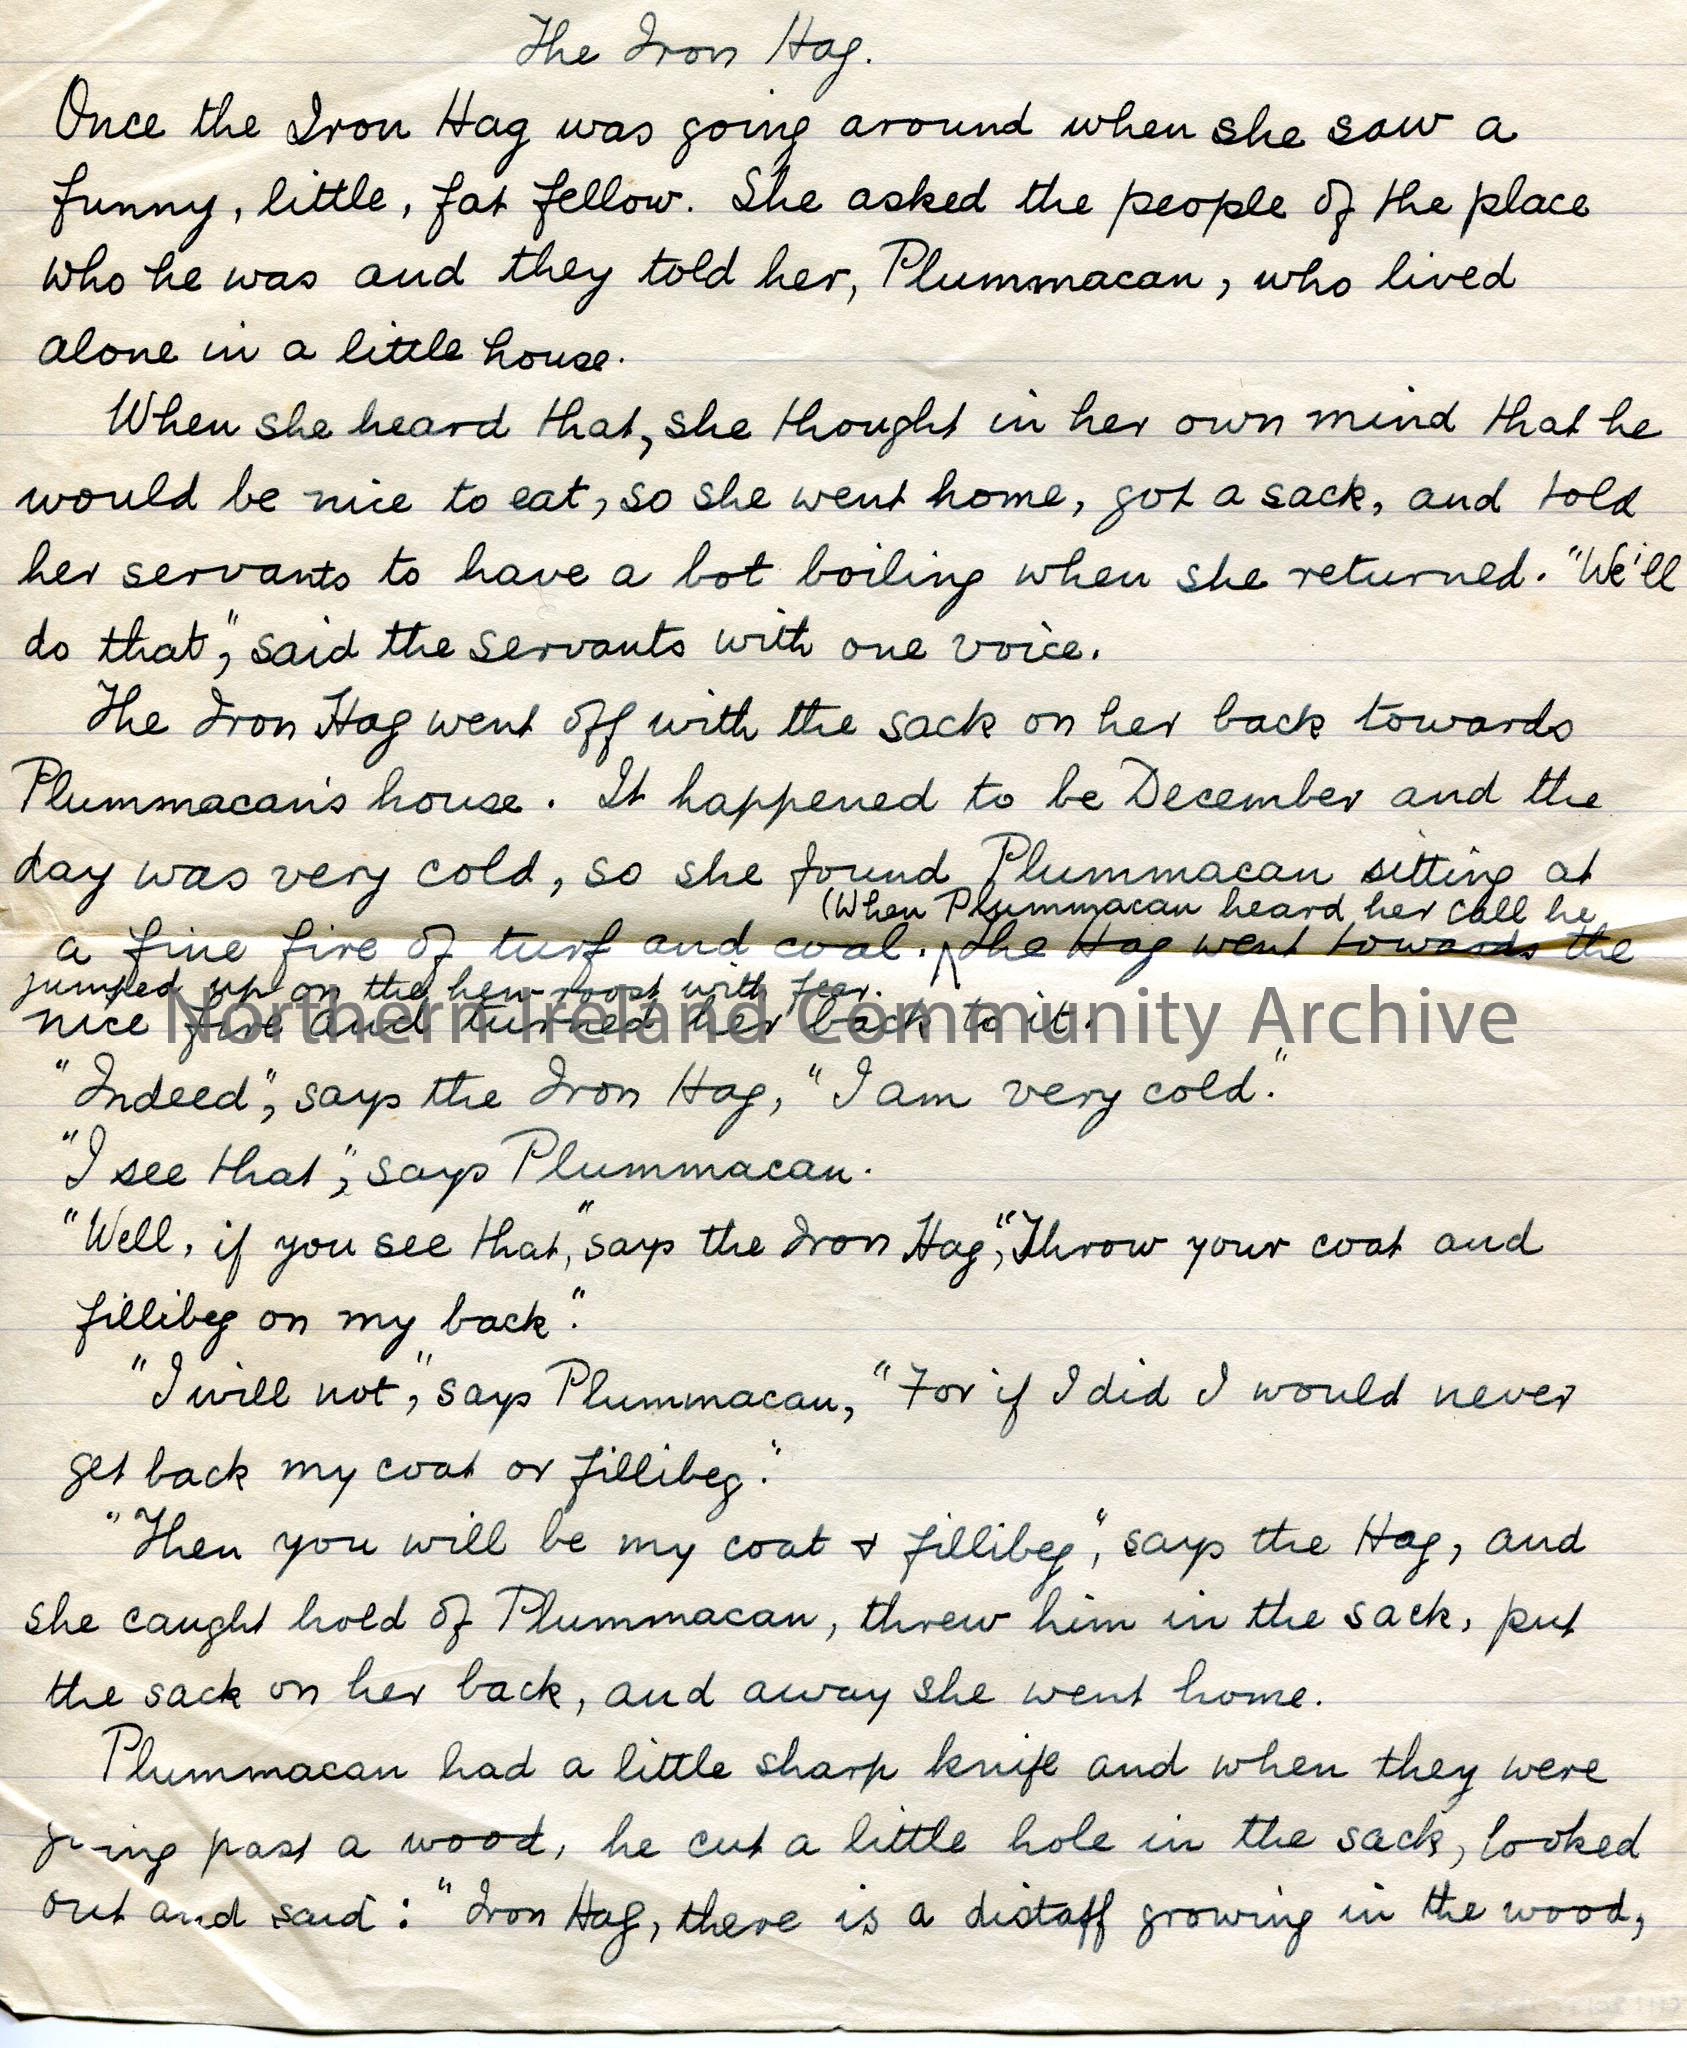 The Iron Hag.
Once the Iron Hag was going around when she saw a
funny, little, fat fellow. She asked the people of the place
who he was and they told her, Plummacan, who lived
alone in a little house.
When she heard that, she thought in her own mind that he
would be nice to eat, so she went home, got a sack, and told
her servants to have a bot boiling when she returned. "We'll
do that", said the servants with one voice.
The Iron Hag went off with the sack on her back towards
Plummacan's house. It happened to be December and the
day was very cold, so she found Plummacan sitting at
(When Plummacan heard her call he
a fine fire of turf and coal. The Hag went towards the
jumped up on the hen-roost with fear.
nice fire and turned her back to it.
Northern Ireland Community Archive
"Indeed", says the Iron Hag, "I am very cold."
"I see that", says Plummacan.
"Well, if you see that," says the Iron Hag, "Throw your coat and
fillibeg on my back".
"I will not", says Plummacan, "For if I did I would never
get back my coat or fillibeg."
"Then you will be my coat & fillibeg", says the Hag, and
she caught hold of Plummacan, threw him in the sack, put
the sack on her back, and away she went home.
Plummacan had a little sharp knife and when they were
going past a wood, he cut a little hole in the sack, looked
out and said: "Iron Hag, there is a distaff growing in the wood,